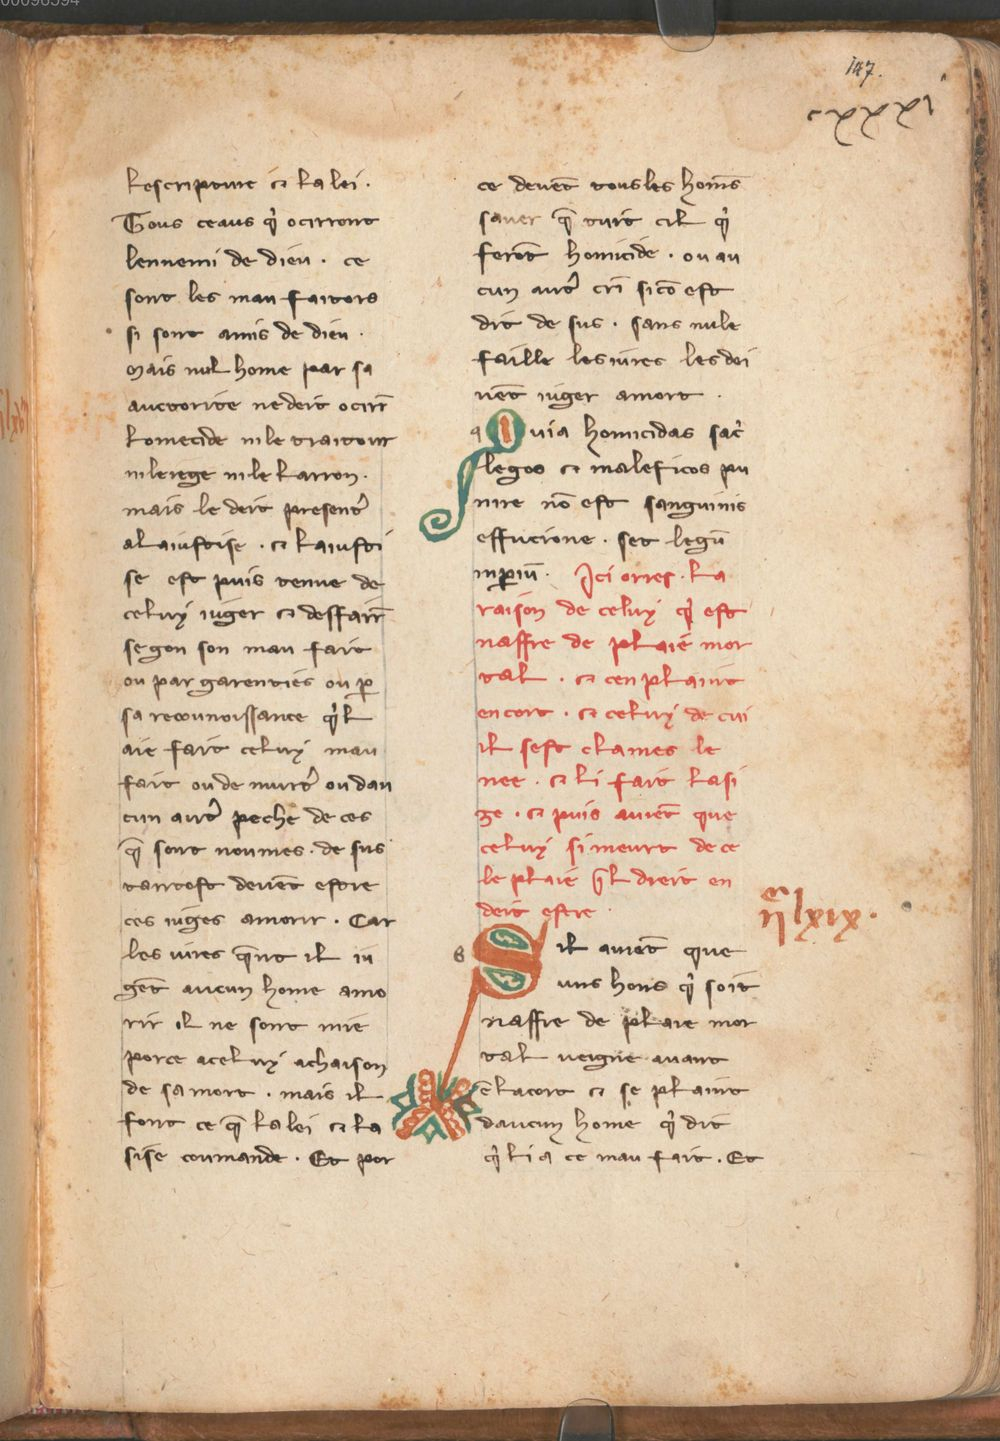 147.
cxxxi
lescripture ⁊ la lei .
Tous ceaus qͥ ocirront
lennemi de dieu . ce
sont les mau faitors
si sont amis de dieu .
Mais nul home par sa
auctorite ne deit ocirr̄
lomecide ni le traitour
ni le rege ni le larron .
mais le deit presentˀ
a la iustise . ⁊ la iusti
se est puis tenue de
celuy iuger ⁊ deffairr̄
segon son mau fait
ou par garenties ou ꝑ
sa reconnoissance qͥl
aie fait celuy mau
fait ou de murtˀ ou dau
cun autˀ peche de ces
q̄ sont noumes . de sus
tantost deuēt estre
ces iuges a morir . Car
les iures q̄nt il iu
gēt aucun home a mo
rir il ne sont mie
por ce a celuy achaison
de sa mort . mais il
font ce q̄ la lei ⁊ la
sise coumande . Et por
ce deuēt tous les hom̄s
sauer q̄ tuit cil qͥ
ferōt homicide . ou au
cun autˀ cri si cō est
dit de sus . sans nule
faille les iures les doi
uēt iuger a mort .
q Quia homicidas sac̄
legos ⁊ maleficos pu
nire nō est sanguinis
effucione . set legū
inꝑiū . Ici orres . la
raison de celuy qͥ est
naffre de plaie mor
tal . ⁊ cen plaint
en cort . ⁊ celuy de cui
il sest clames le
nee . ⁊ li fait la si
ge . ⁊ puis auiēt que
celuy si meurt de ce
le plaie q̄l dreit en
deit estre .
ijᶜlxix .
s Sil auiēt que
uns hons qͥ soit
naffre de plaie mor
tal ueigne auant
ē la cort ⁊ se plaint
daucun home qͥ dit
qͥ li a ce mau fait . Et